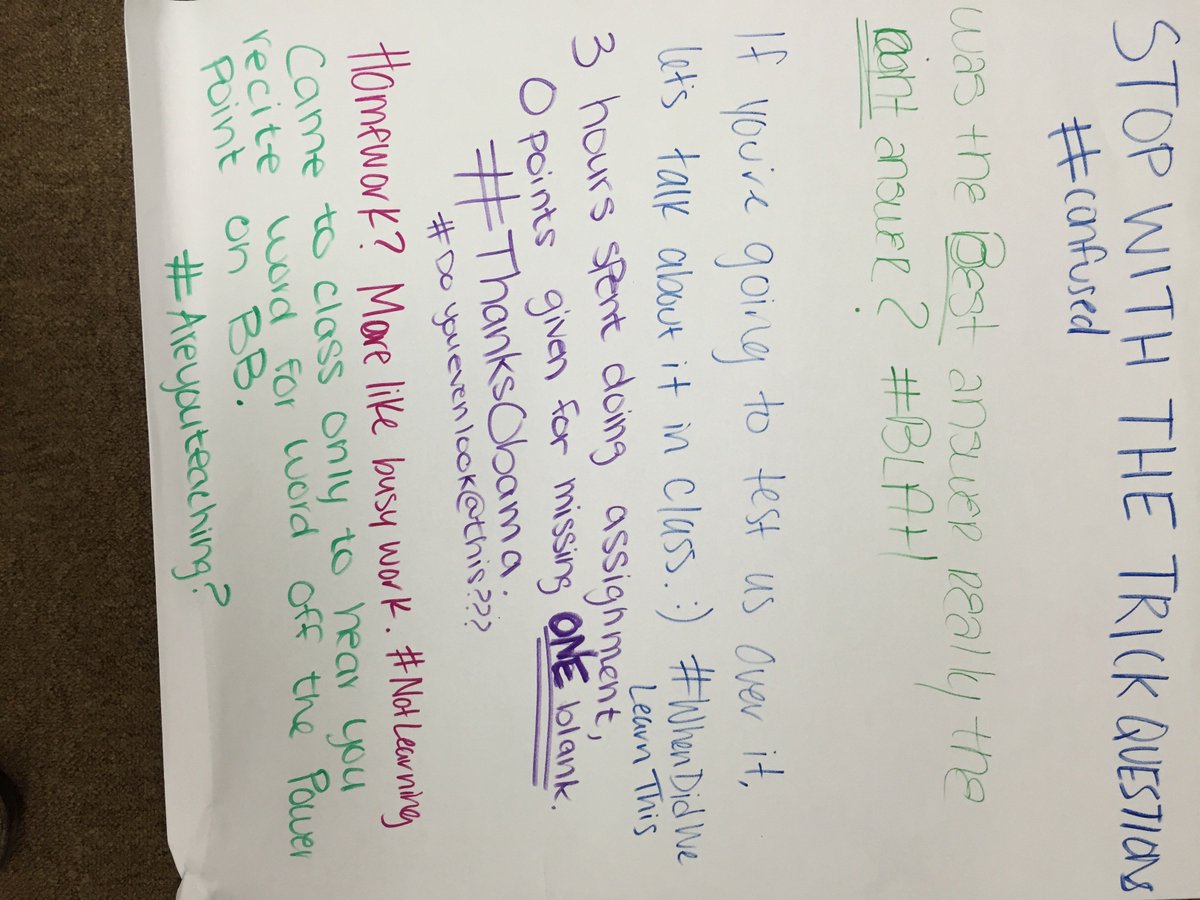 STOP WITH THE TRICK QUESTIONS
#confused
was the Best answer really the
right answer? #BLAH
If you're going to test us over it,
let's talk about it in class. :) #WhenDidWe
Learn This
3 hours spent doing assignment,
0 points given for missing ONE blank.
#ThanksObama
#Doyouevenlook@this???
Homework? More like busy work. #NotLearning
Came to class only to hear you
recite word for word off the Power
Point on BB.
#Areyouteaching?